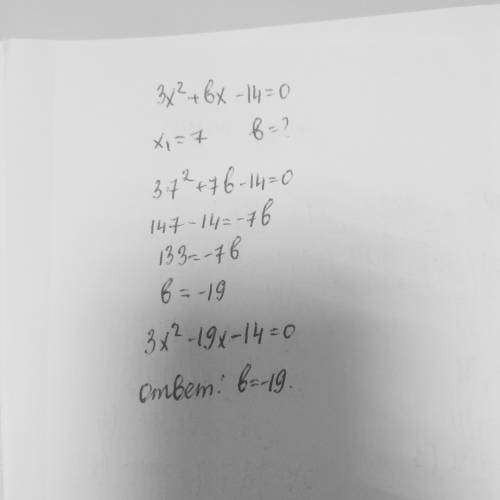 3x² + bx - 14 = 0
x₁ = 7 b = ?
3·7² + 7b - 14 = 0
147 - 14 = -7b
133 = -7b
b = -19
3x² - 19x - 14 = 0
Ответ: b = -19.